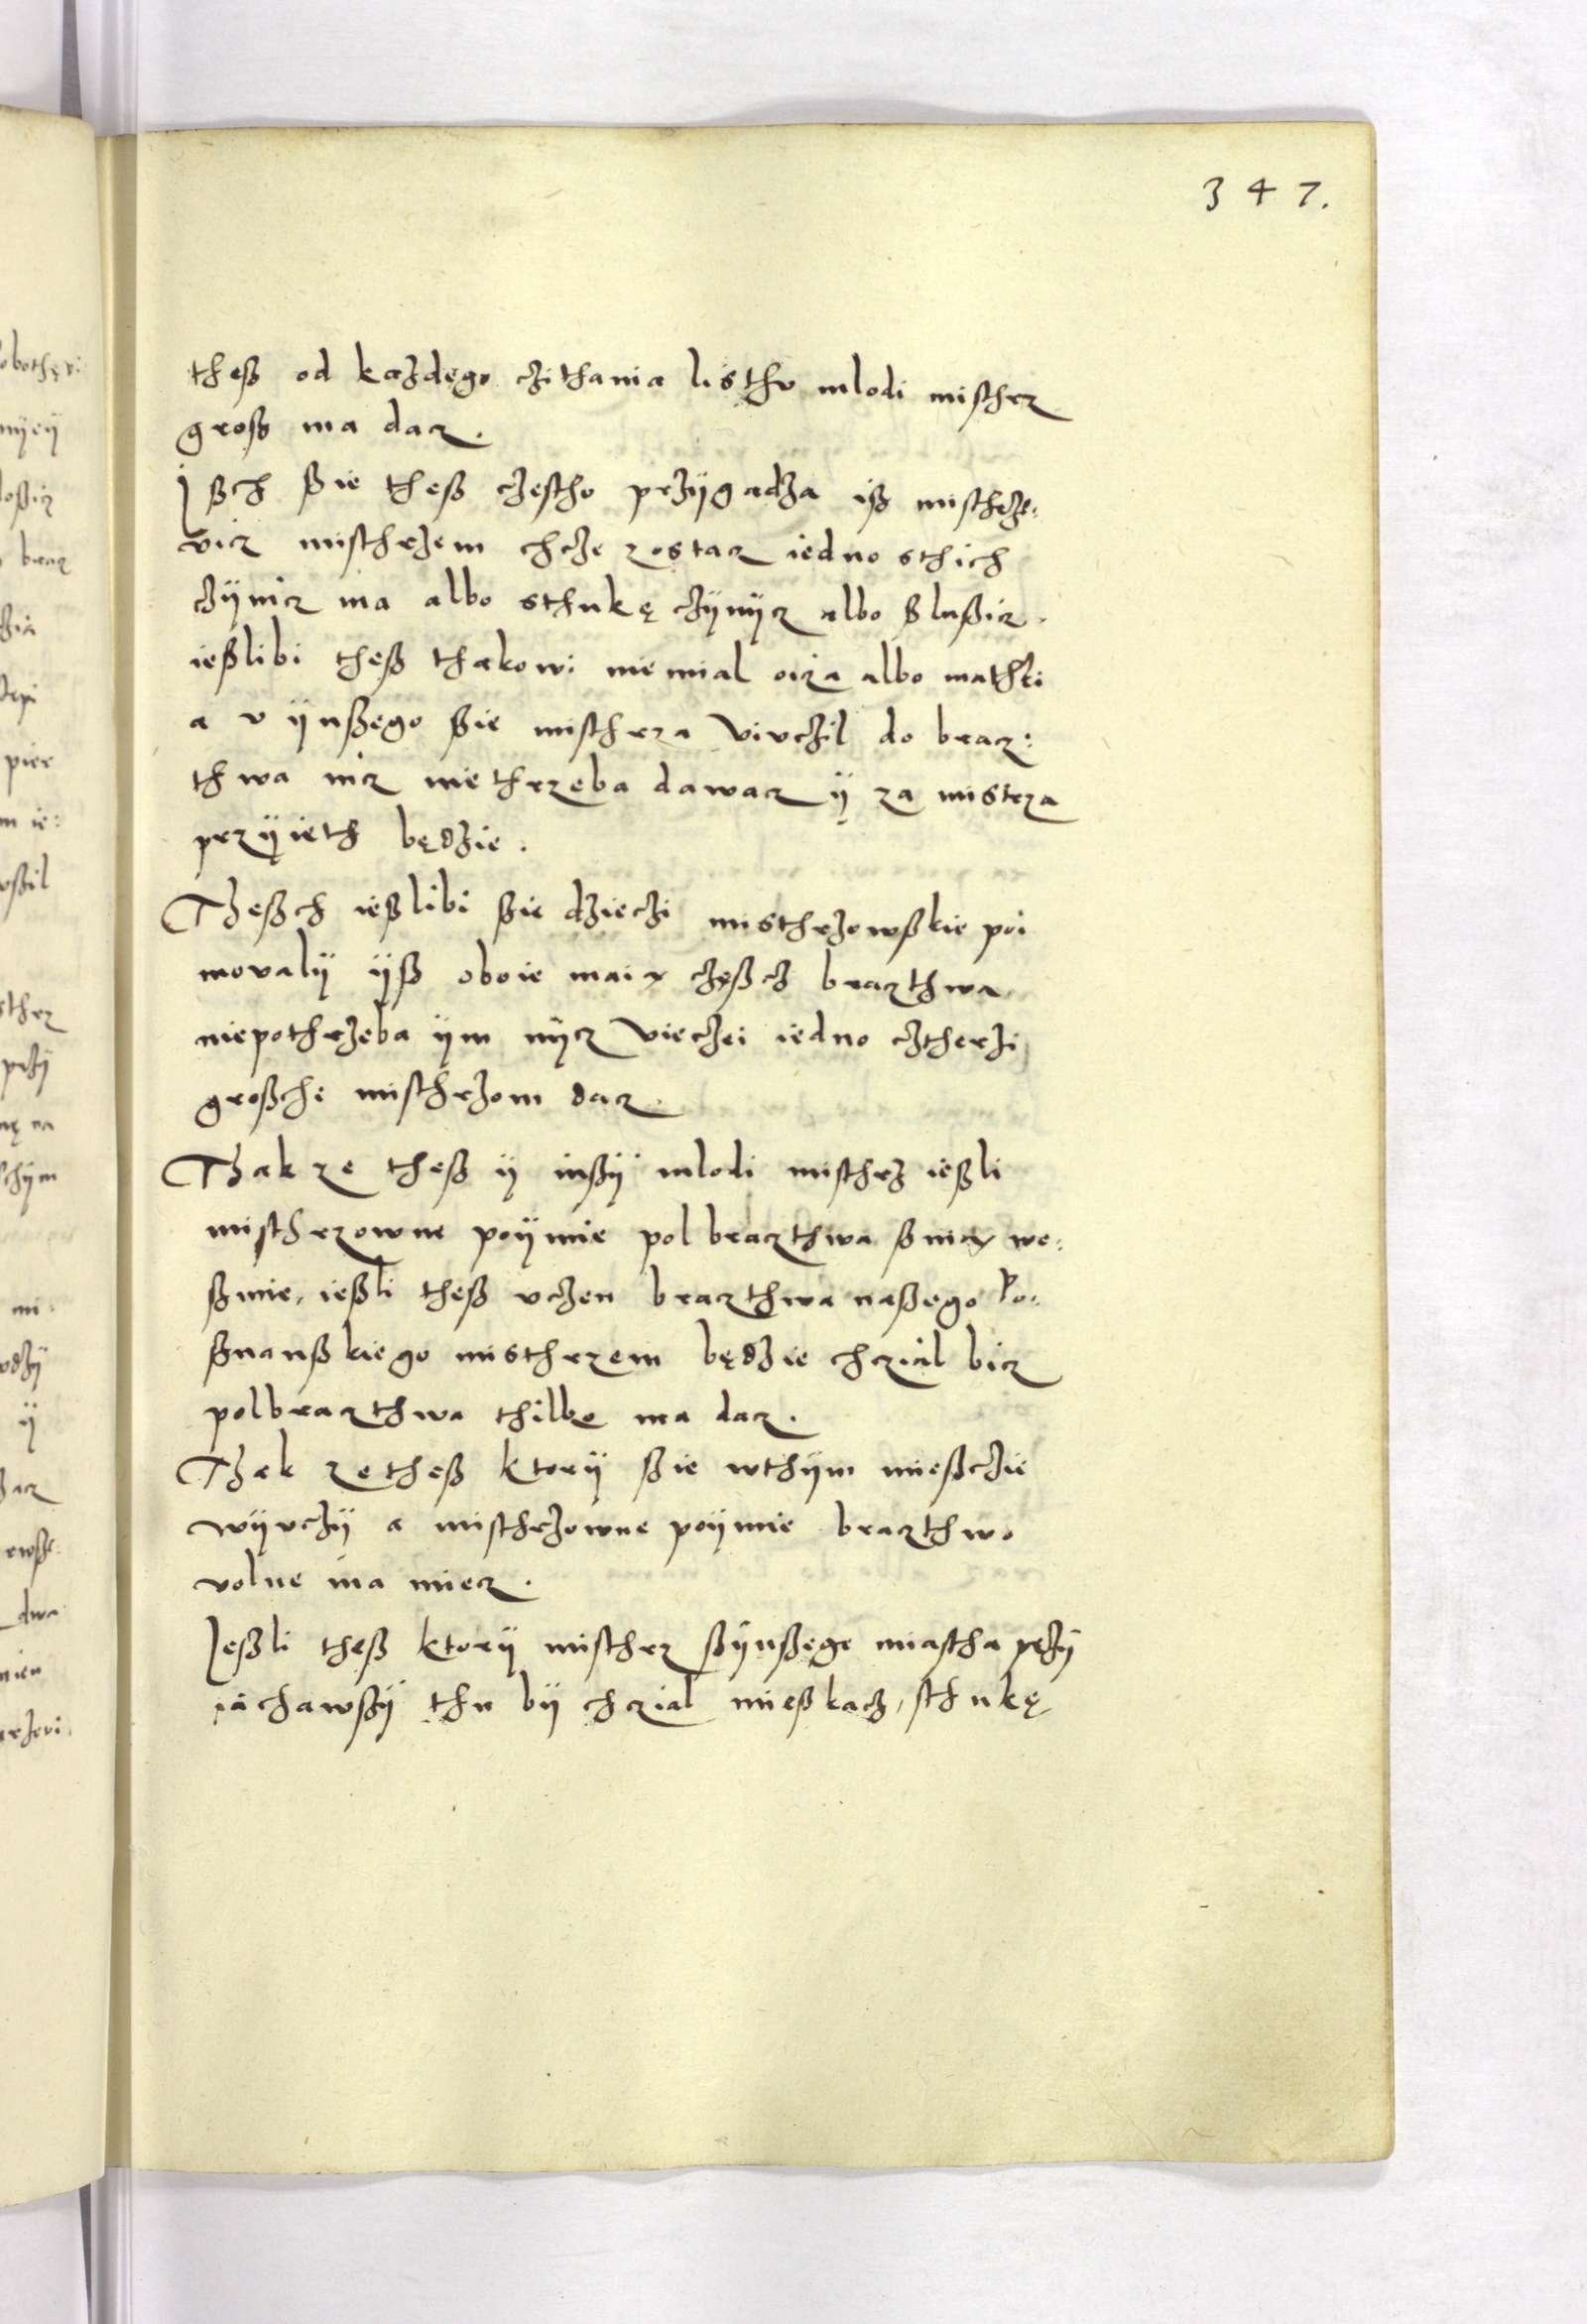 347.
theß od kazdego czithania listhu mlodi misthrz
groß ma dacz.
Jßch ßie theß czestho przÿgadza iß misthrze:
vicz misthrzem chcze zostacz iedno sthich
czÿnicz ma albo sthukę czÿnÿcz albo ßlußicz.
ießlibi theß thakowi niemial oicza albo mathki
a v ÿnßego ßie misthrza Viuczil do bracz:
thwa nicz niethrzeba dawacz ÿ za mistrza
przÿieth będzie.
Theßch ießlibi ßie dzieczi misthrzowßkie poi
movalÿ ÿß oboie maią częßcz braczthwa
niepothrzeba ÿm nÿcz vieczei iedno cztherzi
großche misthrzom dacz.
Thak ze theß ÿ inßÿ mlodi misthrz ießli
misthrzowne poÿmie pol braczthwa ß nią we:
ßmie, ießli theß vczen braczthwa naßego Po:
ßnanßkiego misthrzem będzie chczial bicz
polbraczthwa thilko ma dacz.
Thak ze theß ktorÿ ßie wthÿm mießczie
wÿuczÿ a misthrzowne poÿmie braczthwo
volne ma miecz.
Jeßli theß ktorÿ misthrz ßÿnßego miastha przÿ
iachawßÿ thu bÿ chczial mießkacz, sthukę